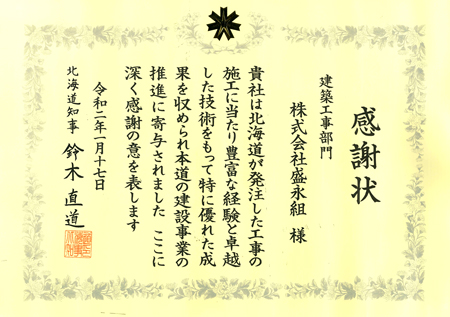 感謝状
建築工事部門
株式会社盛永組 様
貴社は北海道が発注した工事の
施工に当たり豊富な経験と卓越
した技術をもって特に優れた成
果を収められ本道の建設事業の
推進に寄与されました ここに
深く感謝の意を表します
令和二年一月十七日
北海道知事 鈴木直道